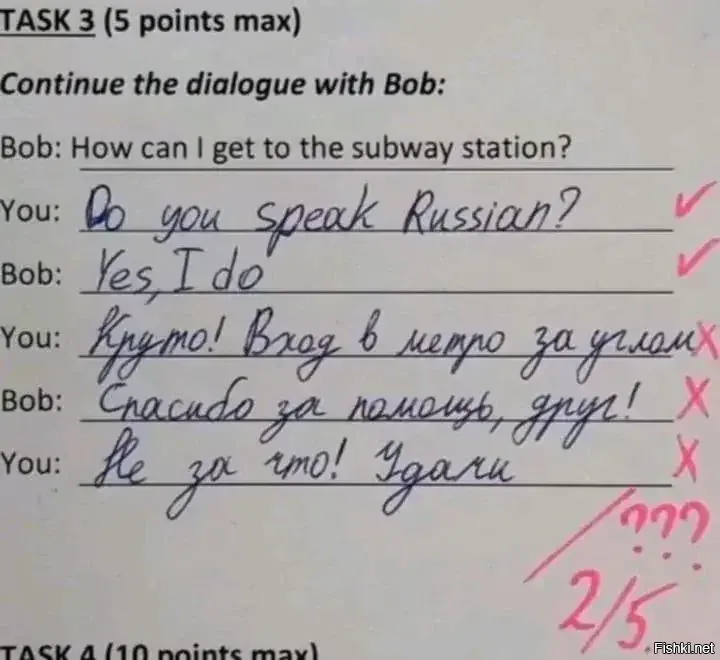 TASK 3 (5 points max)
Continue the dialogue with Bob:
Bob: How can I get to the subway station?
You: Do you speak Russian? ✓
Bob: Yes, I do ✓
You: Круто! Вход в метро за углом X
Bob: Спасибо за помощь, друг! X
You: Не за что! Удачи X
???
2/5
TASK 4 (10 points max)
Fishki.net